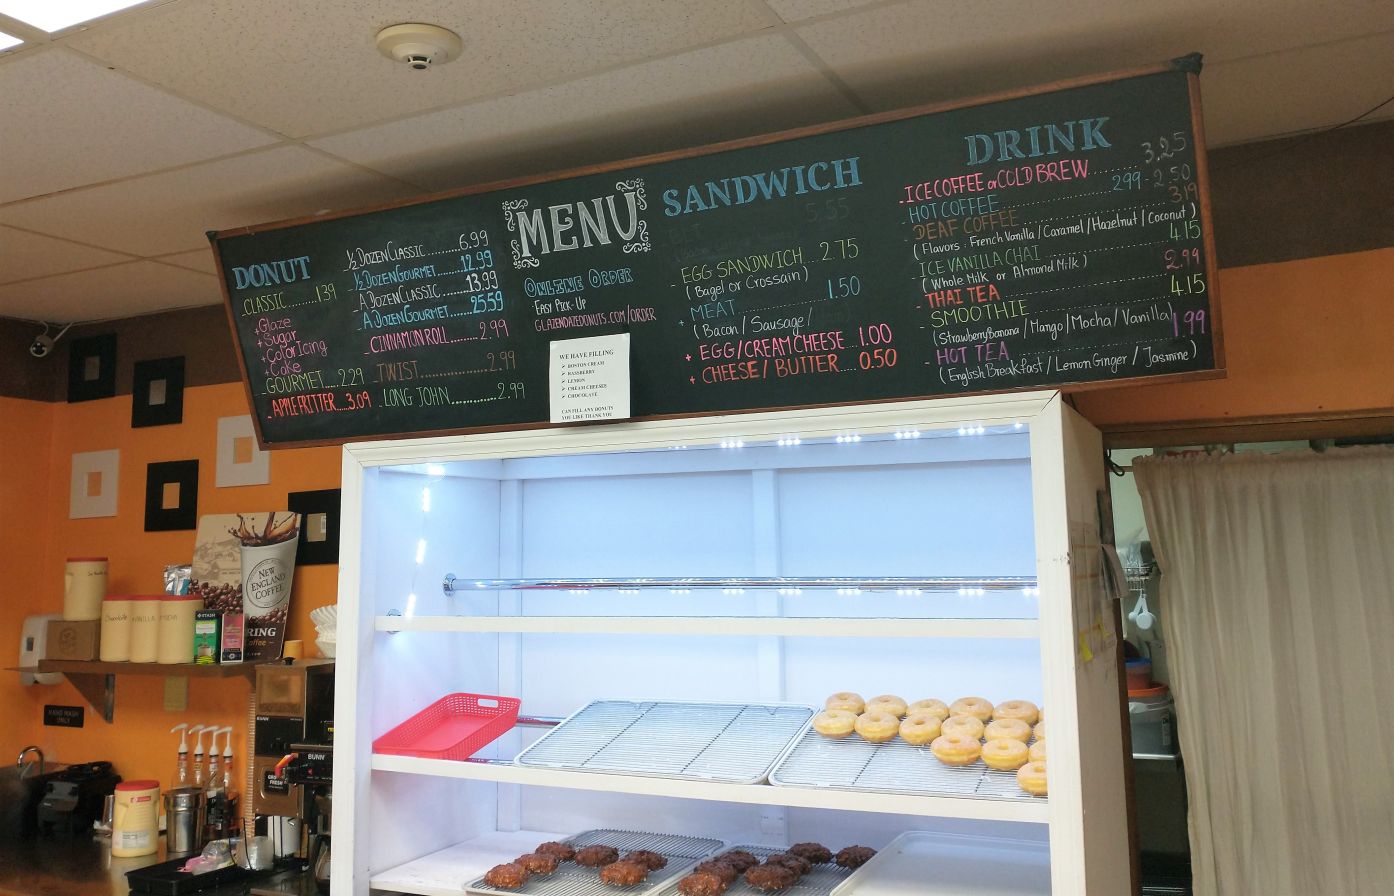 MENU
ONLINE ORDER
EASY PICK-UP
GLAZENDAZEDONUTS.COM/ORDER
DONUT
CLASSIC.......1.39
+Glaze
+Sugar
+Color Icing
+Cake
GOURMET....2.29
APPLE FRITTER.....3.09
½ DOZEN CLASSIC......6.99
½ DOZEN GOURMET......12.99
A DOZEN CLASSIC......13.99
A DOZEN GOURMET......25.59
CINNAMON ROLL........2.99
TWIST................2.99
LONG JOHN............2.99
WE HAVE FILLING
BOSTON CREAM
RASBERRY
LEMON
CREAM CHEESES
CHOCOLATE
CAN FILL ANY DONUTS
YOU LIKE THANK YOU
SANDWICH
5.55
- EGG SANDWICH... 2.75
(Bagel or Crossain)
+ MEAT 1.50
(Bacon / Sausage /
+ EGG/CREAM CHEESE...1.00
+ CHEESE / BUTTER....0.50
DRINK
- ICE COFFEE or COLD BREW......3.25
- HOT COFFEE..............2.99-2.50
- DEAF COFFEE.............3.19
(Flavors: French Vanilla/Caramel/Hazelnut/Coconut)
- ICE VANILLA CHAI........4.15
(Whole Milk or Almond Milk)
- THAI TEA................2.99
- SMOOTHIE................4.15
(Strawberry Banana / Mango / Mocha / Vanilla)
- HOT TEA.................1.99
(English Breakfast / Lemon Ginger / Jasmine)
NEW
ENGLAND
COFFEE
RING
Coffee
Chocolate
VANILLA
MOCHA
STASH
HAND WASH
ONLY
BUNN
BUNN